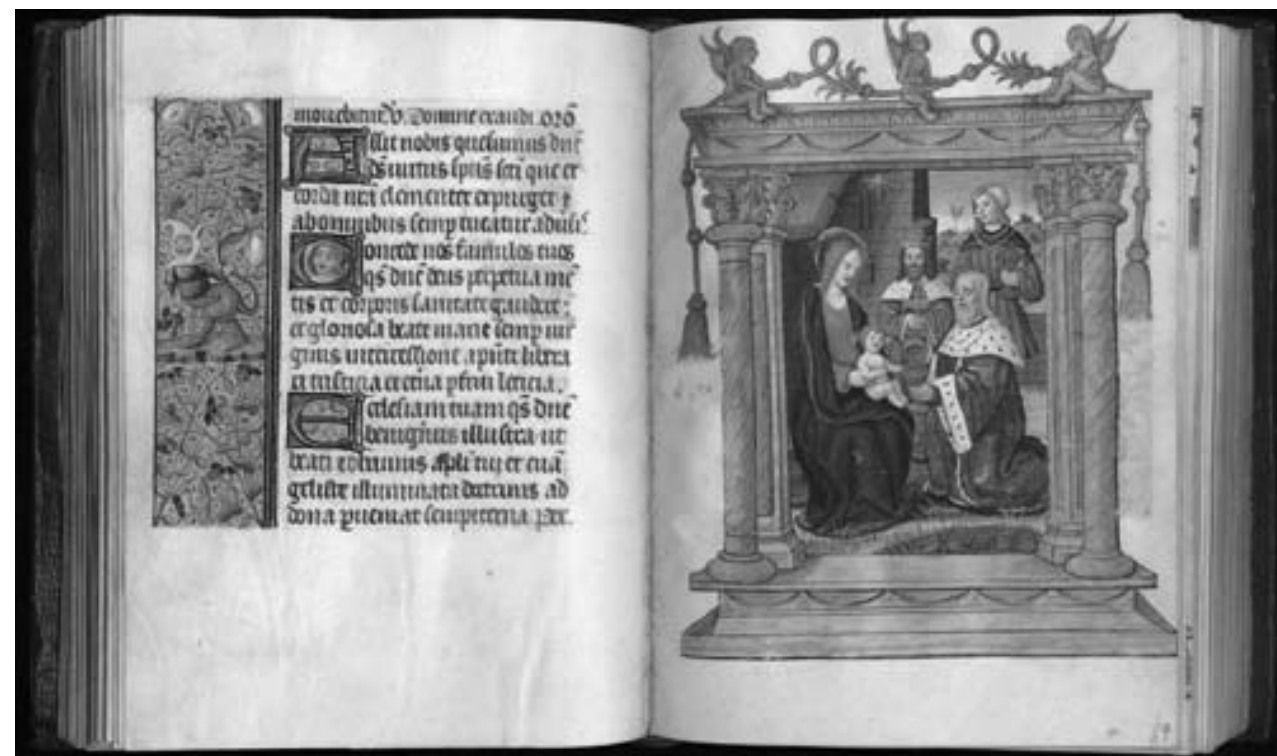 mouebitur. V. Domine exaudi. orō
Assit nobis quesumus dn̄e
ds̄ uirtus sp̄us sc̄i que et
corda nr̄a clementer expurget ⁊
ab omnibus semp tueatur aduersis
Concede nos famulos tuos
qs̄ dn̄e deus perpetua mē
tis et corporis sanitate gaudere :
et gloriosa beate marie semp uir
ginis intercessione a pn̄ti libera
ri tristicia et eterna pfrui leticia .
Ecclesiam tuam qs̄ dn̄e
benignus illustra ut
beati iohannis apl̄i tui et euā
geliste illuminata doctrinis ad
dona pueniat sempiterna Per